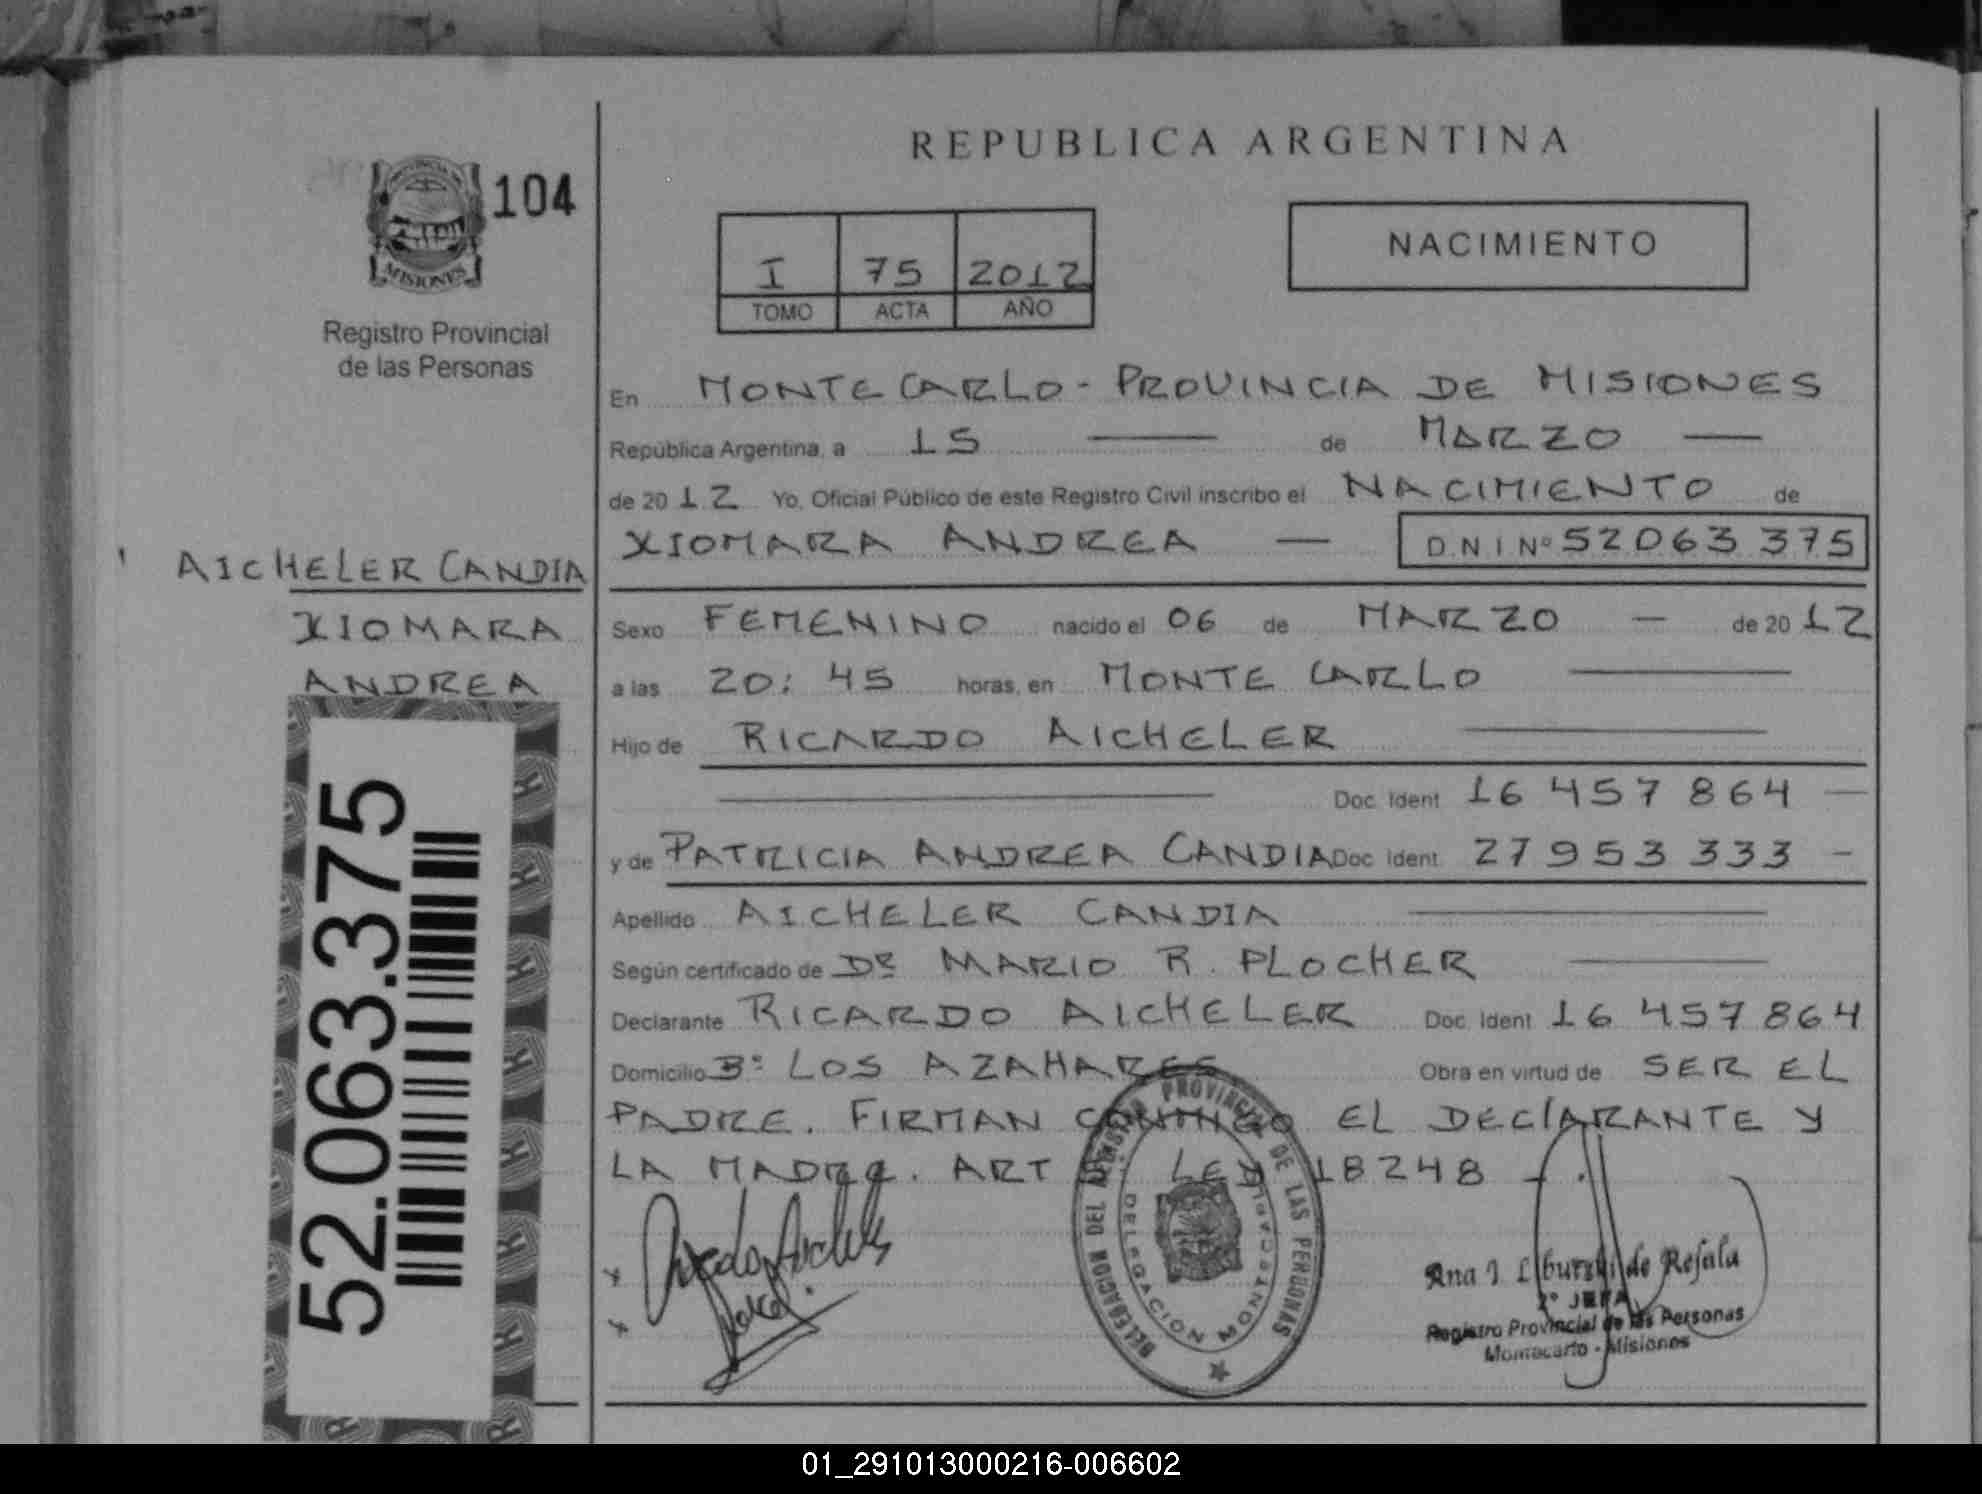 REPUBLICA ARGENTINA
PROVINCIA DE
MISIONES
104
Registro Provincial
de las Personas
I 75 2012
TOMO ACTA AÑO
NACIMIENTO
En MONTECARLO - PROVINCIA DE MISIONES
República Argentina, a 15 — de MARZO —
de 2012 Yo, Oficial Público de este Registro Civil inscribo el NACIMIENTO de
XIOMARA ANDREA — D.N.I Nº 52063375
AICHELER CANDIA
XIOMARA
ANDREA
Sexo FEMENINO nacido el 06 de MARZO — de 2012
a las 20:45 horas, en MONTE CARLO —
Hijo de RICARDO AICHELER —
— Doc. Ident 16 457 864 —
y de PATRICIA ANDREA CANDIA Doc. Ident. 27 953 333 -
Apellido AICHELER CANDIA —
Según certificado de Dr MARIO R. PLOCHER —
Declarante RICARDO AICHELER Doc. Ident 16 457 864
Domicilio Bº LOS AZAHARES Obra en virtud de SER EL
PADRE. FIRMAN CONMIGO EL DECLARANTE Y
LA MADRE. ART LEY 18248 -.
52.063.375
DELEGACION DEL REGISTRO PROVINCIAL DE LAS PERSONAS
DELEGACION MONTECARLO
Ana I. de Rejala
2º JEFA
Registro Provincial de las Personas
Montecarlo - Misiones
01_291013000216-006602